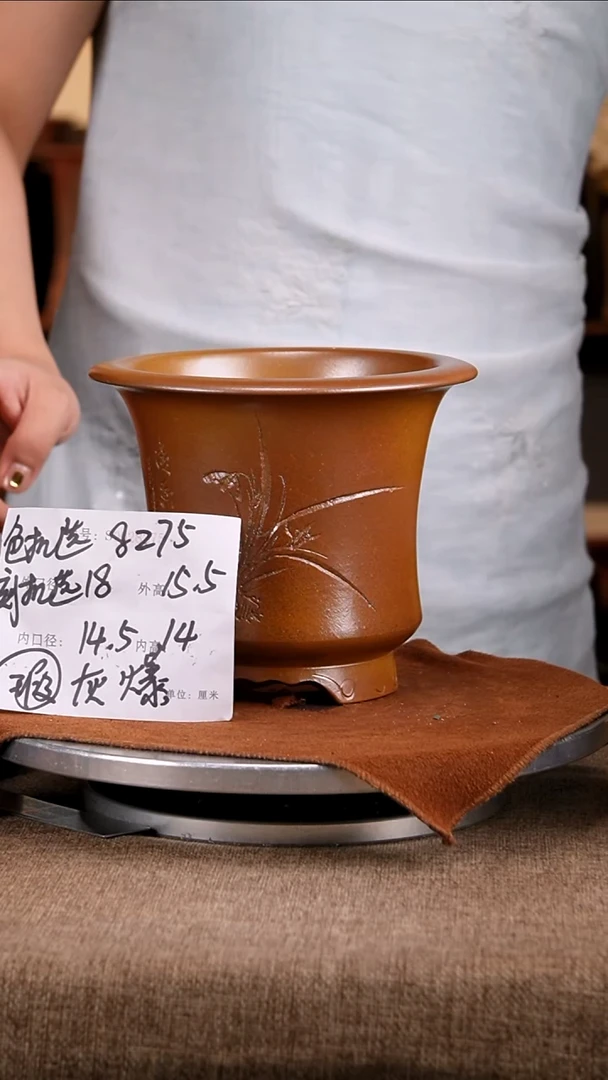 色机选 号: 8275
刻机选 18 外高 15.5
内口径: 14.5 内高 14
瑕 灰爆 单位: 厘米